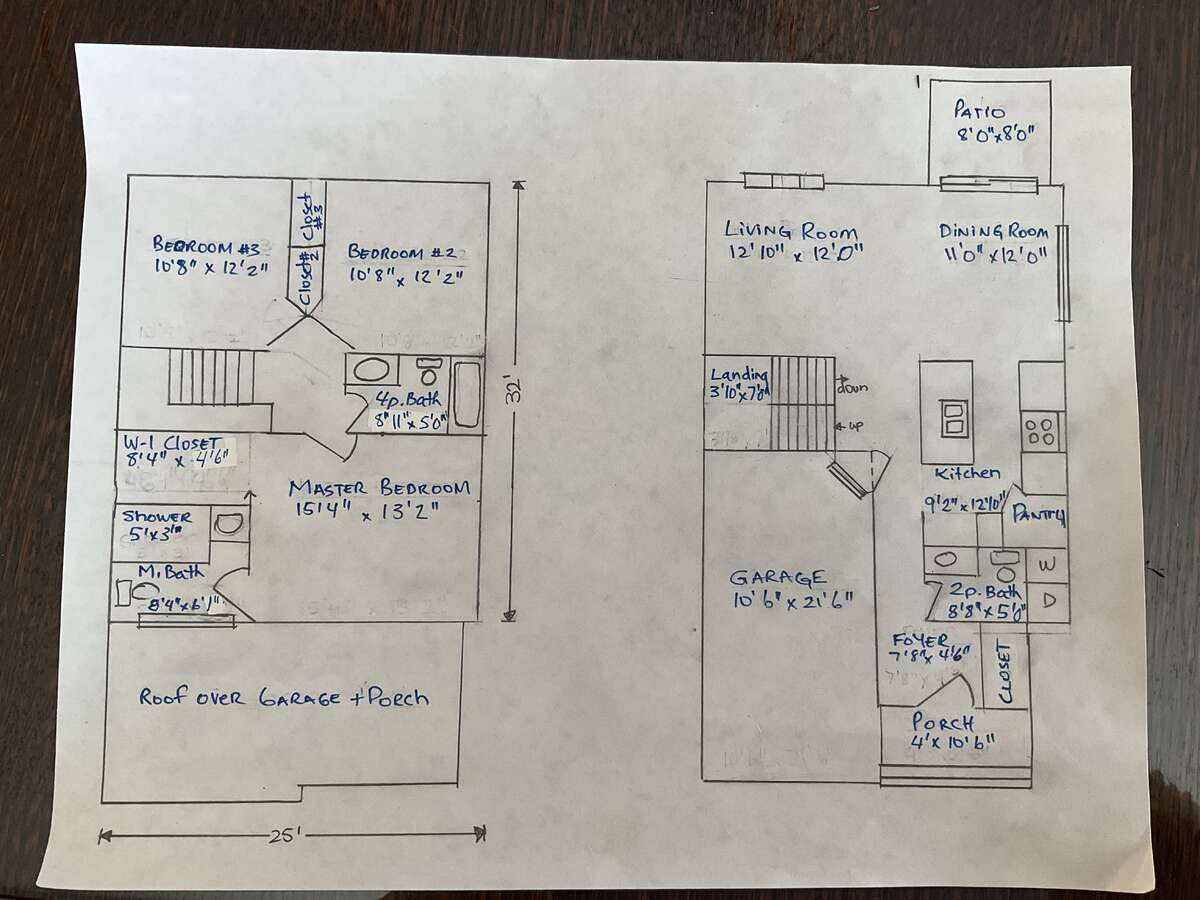 BEDROOM #3
10'8" x 12'2"
Closet #3
Closet #2
BEDROOM #2
10'8" x 12'2"
4p. Bath
8'11" x 5'0"
32'
W-I CLOSET
8'4" x 4'6"
MASTER BEDROOM
15'4" x 13'2"
SHOWER
5'x3'
M. Bath
8'4" x 6'1"
ROOF OVER GARAGE + PORCH
25'
PATIO
8'0" x 8'0"
LIVING ROOM
12'10" x 12'0"
DINING ROOM
11'0" x 12'0"
Landing
3'10" x 7'0"
down
up
Kitchen
9'2" x 12'10"
PANTRY
GARAGE
10'6" x 21'6"
W
D
2p. Bath
8'8" x 5'0"
FOYER
7'8" x 4'6"
CLOSET
PORCH
4' x 10'6"